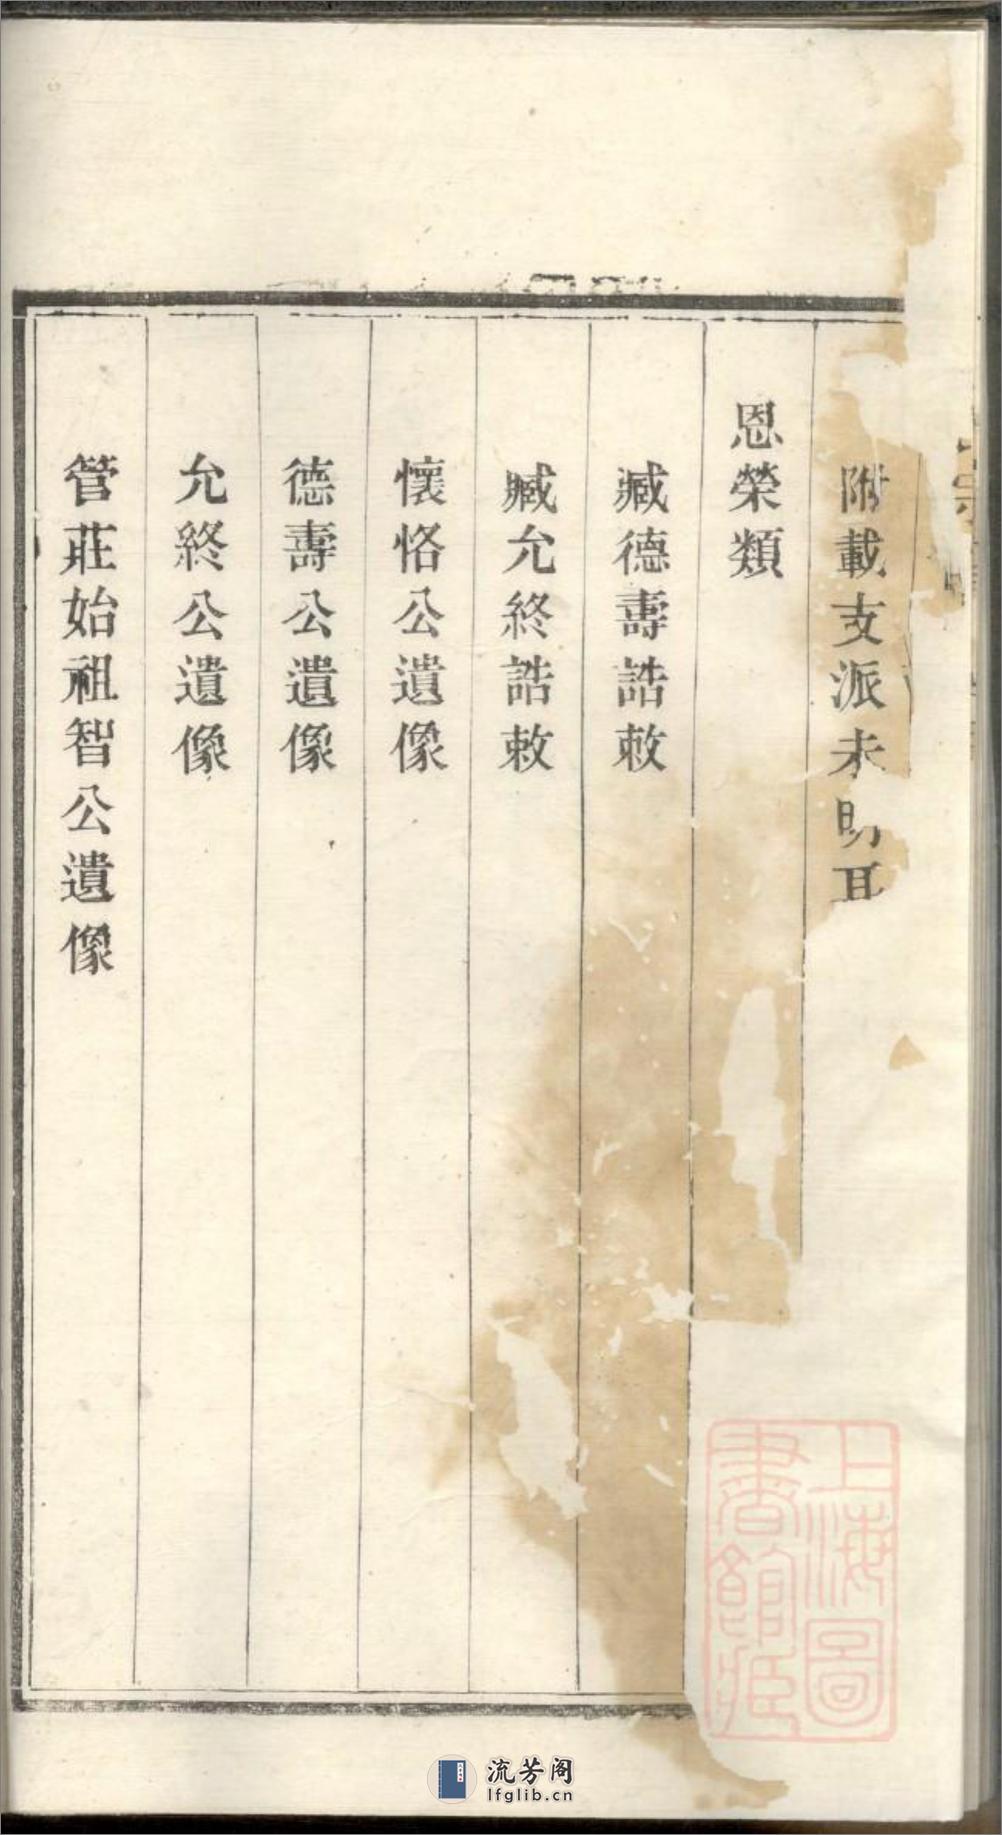 附載支派未明
恩榮類
臧德壽誥敕
臧允終誥敕
懷恪公遺像
德壽公遺像
允終公遺像
管莊始祖智公遺像
上海圖書館藏
流芳阁
lfglib.cn